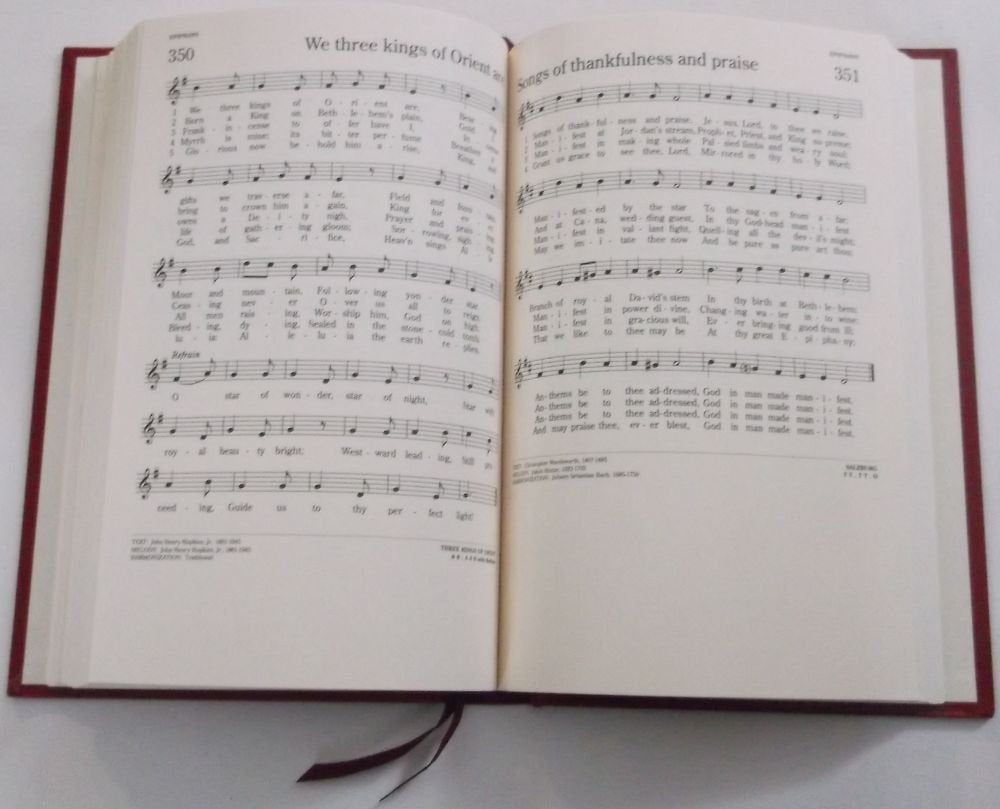 EPIPHANY
350
We three kings of Orient are
1 We three kings of O - ri - ent are, Bear - ing
2 Born a King on Beth - le - hem's plain, Gold
3 Frank - in - cense to of - fer have I, In - cense
4 Myrrh is mine; its bit - ter per - fume Breathes a
5 Glo - rious now be - hold him a - rise, King, and
gifts we trav - erse a - far, Field and foun - tain,
bring to crown him a - gain, King for ev - er
owns a De - i - ty nigh, Prayer and prais - ing
life of gath - er - ing gloom; Sor - rowing, sigh - ing
God, and Sac - ri - fice, Heav'n sings Al
Moor and moun - tain, Fol - low - ing yon - der star.
Ceas - ing nev - er O - ver us all to reign.
All men rais - ing, Wor - ship him, God on high.
Bleed - ing, dy - ing, Sealed in the stone - cold tomb.
lu - ia: Al - le - lu - ia the earth re - plies.
Refrain
O star of won - der, star of night, Star with
roy - al beau - ty bright; West - ward lead - ing, Still pro -
ceed - ing, Guide us to thy per - fect light!
TEXT: John Henry Hopkins, Jr.
MELODY: John Henry Hopkins, Jr.
HARMONIZATION: Traditional
THREE KINGS OF ORIENT
EPIPHANY
351
Songs of thankfulness and praise
1 Songs of thank - ful - ness and praise, Je - sus, Lord, to thee we raise,
2 Man - i - fest at Jor - dan's stream, Proph - et, Priest, and King su - preme;
3 Man - i - fest in mak - ing whole Pal - sied limbs and wea - ry soul;
4 Grant us grace to see thee, Lord, Mir - rored in thy ho - ly Word;
Man - i - fest - ed by the star To the sag - es from a - far;
And at Ca - na, wed - ding guest, In thy God-head man - i - fest
Man - i - fest in val - iant fight, Quell - ing all the dev - il's might;
May we im - i - tate thee now And be pure as pure art thou;
Branch of roy - al Da - vid's stem In thy birth at Beth - le - hem:
Man - i - fest in power di - vine, Chang - ing wa - ter in - to wine:
Man - i - fest in gra - cious will, Ev - er bring - ing good from ill:
That we like to thee may be At thy great E - pi - pha - ny;
An - thems be to thee ad - dressed, God in man made man - i - fest.
An - thems be to thee ad - dressed, God in man made man - i - fest.
An - thems be to thee ad - dressed, God in man made man - i - fest.
And may praise thee, ev - er blest, God in man made man - i - fest.
TEXT: Christopher Wordsworth, 1807-1885
MELODY: Jakob Hintze, 1622-1702
HARMONIZATION: Johann Sebastian Bach, 1685-1750
SALZBURG
77. 77. D